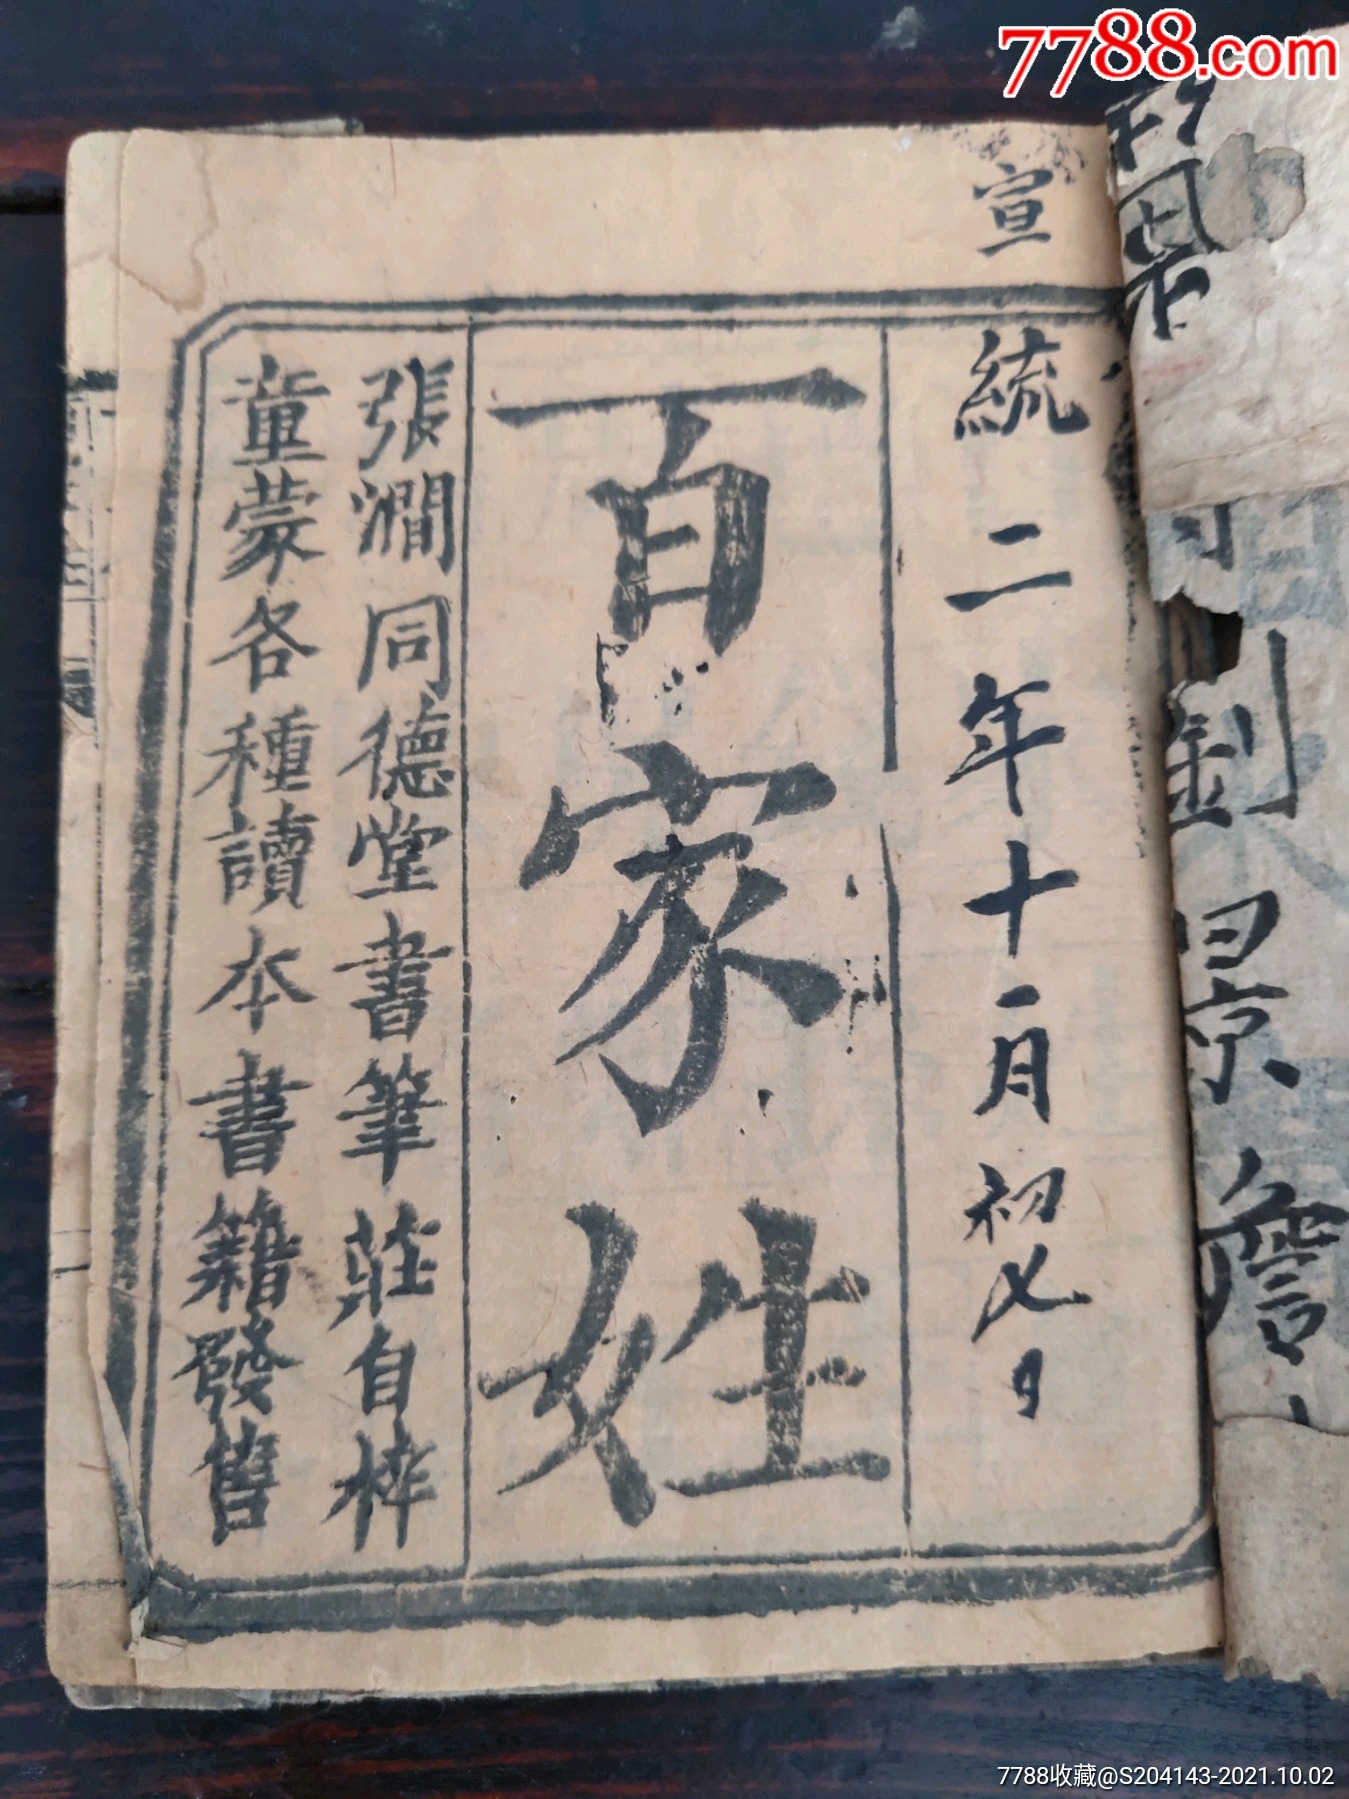 7788.com
宣統二年十一月初七日
百家姓
張澗同德堂書筆莊自梓
童蒙各種讀本書籍發售
劉景
7788收藏@S204143-2021.10.02